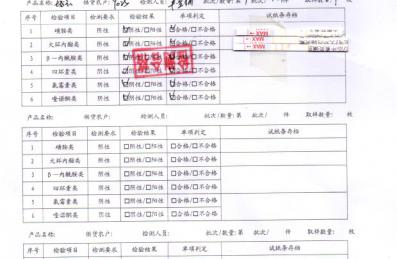 产品名称: 供货农户: 检测人员: 批次/数量:第 批次/ 件 取样数量: 枚
序号 检验项目 检测要求 检验结果 单项判定 试纸条存档
1 磺胺类 阴性 ☑阴性/☐阳性 ☑合格/☐不合格
2 大环内酯类 阴性 ☑阴性/☐阳性 ☑合格/☐不合格
3 β-内酰胺类 阴性 ☑阴性/☐阳性 ☑合格/☐不合格
4 四环素类 阴性 ☑阴性/☐阳性 ☑合格/☐不合格
5 氟霉素类 阴性 ☑阴性/☐阳性 ☑合格/☐不合格
6 喹诺酮类 阴性 ☑阴性/☐阳性 ☑合格/☐不合格
MAX
MAX
产品名称: 供货农户: 检测人员: 批次/数量:第 批次/ 件 取样数量: 枚
序号 检验项目 检测要求 检验结果 单项判定 试纸条存档
1 磺胺类 阴性 ☐阴性/☐阳性 ☐合格/☐不合格
2 大环内酯类 阴性 ☐阴性/☐阳性 ☐合格/☐不合格
3 β-内酰胺类 阴性 ☐阴性/☐阳性 ☐合格/☐不合格
4 四环素类 阴性 ☐阴性/☐阳性 ☐合格/☐不合格
5 氟霉素类 阴性 ☐阴性/☐阳性 ☐合格/☐不合格
6 喹诺酮类 阴性 ☐阴性/☐阳性 ☐合格/☐不合格
产品名称: 供货农户: 检测人员: 批次/数量:第 批次/ 件 取样数量: 枚
序号 检验项目 检测要求 检验结果 单项判定 试纸条存档